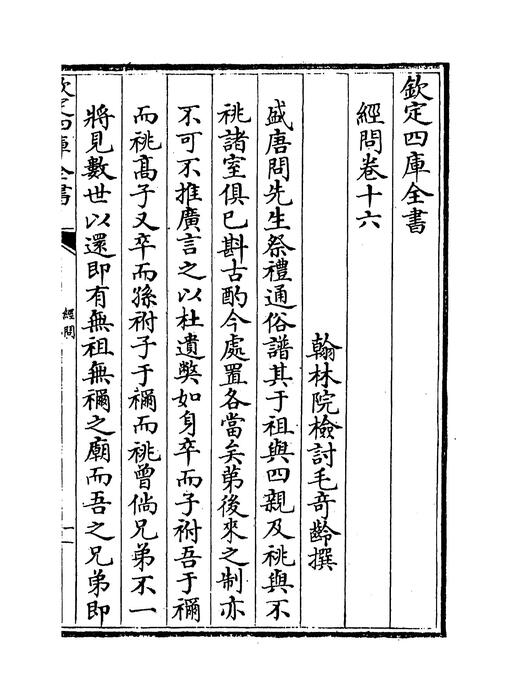 欽定四庫全書
經問卷十六
翰林院檢討毛奇齡撰
盛唐問先生祭禮通俗譜其于祖與四親及祧與不
祧諸室俱已斟古酌今處置各當矣第後來之制亦
不可不推廣言之以杜遺弊如身卒而子祔吾于禰
而祧高子又卒而孫祔子于禰而祧曾倘兄弟不一
將見數世以還即有無祖無禰之廟而吾之兄弟即
欽定四庫全書
經問
一